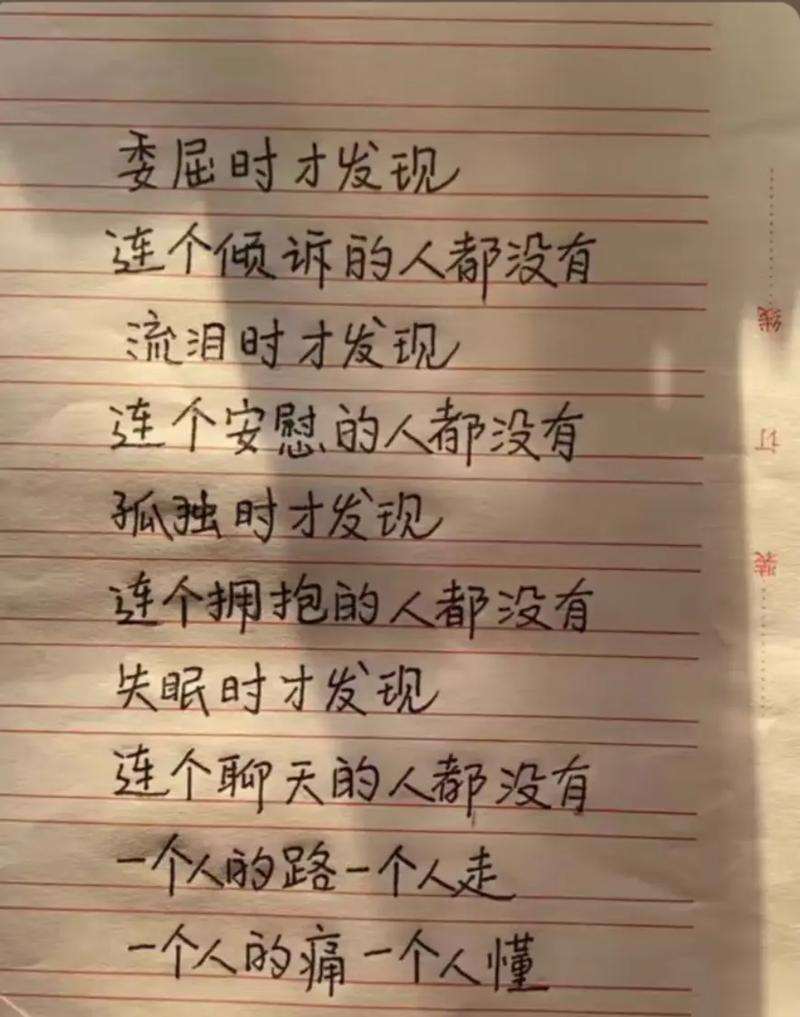 委屈时才发现
连个倾诉的人都没有
流泪时才发现
连个安慰的人都没有
孤独时才发现
连个拥抱的人都没有
失眠时才发现
连个聊天的人都没有
一个人的路一个人走
一个人的痛一个人懂
装订线